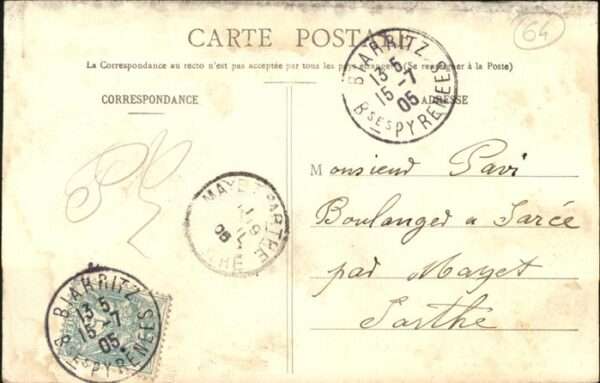 64
CARTE POSTALE
La Correspondance au recto n'est pas acceptée par tous les pays étrangers (Se renseigner à la Poste)
CORRESPONDANCE
ADRESSE
BIARRITZ
13 5
15 - 7
05
Bses PYRENEES
Monsieur Pavi
Boulanger a Sarcé
par Mayet
Sarthe
MAYET SARTHE
BIARRITZ
13 5
15 - 7
05
Bses PYRENEES